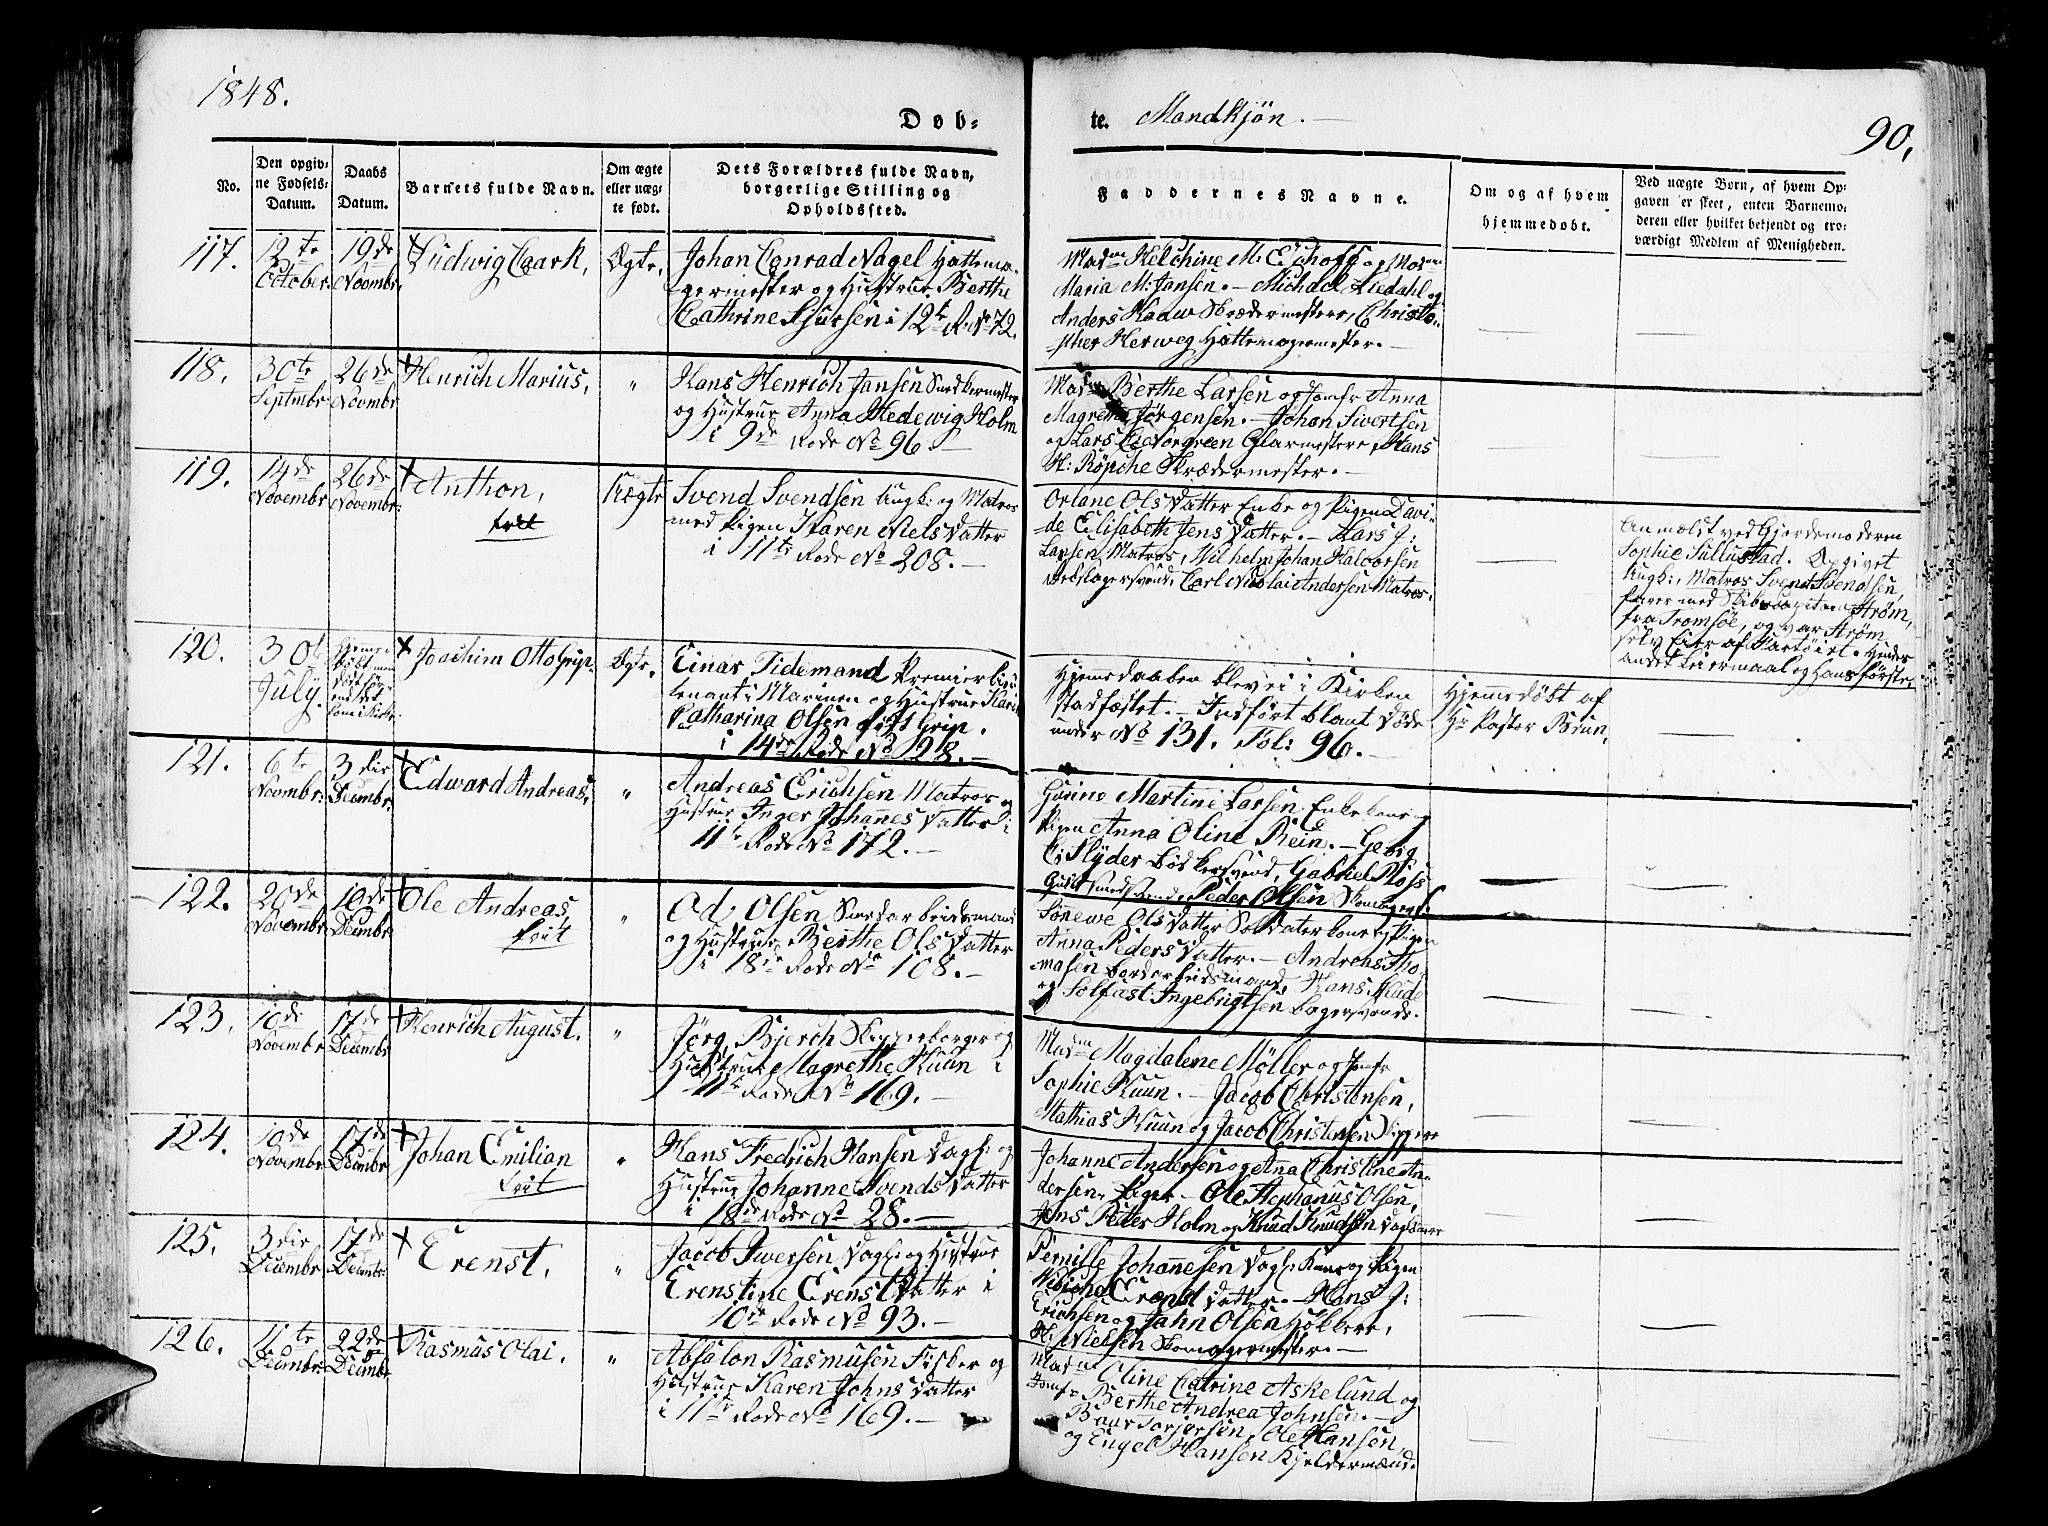 1848.
Dob-
te. Mandkjøn.
90,
No.
Den opgiv-
ne Fødsels-
Datum.
Daabs
Datum.
Barnets fulde Navn.
Om ægte
eller uæg-
te født.
Dets Forældres fulde Navn,
borgerlige Stilling og
Opholdssted.
Faddernes Navne.
Om og af hvem
hjemmedøbt.
Ved uægte Børn, af hvem Op-
gaven er skeet, enten Barnemo-
deren eller hvilket bekjendt og tro-
værdigt Medlem af Menigheden.
117.
12te
October
19de
Novembr.
Ludwig Caark,
Ægte,
Johan Conrad Nagel Hattema-
germester og Hustrue Berthe
Cathrine Sjursen i 12te R. No 72.
Madme Melchine M. Eichoff og Madme
Maria M. Jansen. - Michael Liedahl og
Anders Kaaw Skrædermestere, Christo-
pher Herweg Hattemagermester. -
118.
30te
Septmbr
26de
Novmbr
Henrich Marius,
"
Hans Henrich Jansen Snedkermester
og Hustrue Anna Hedewig Holm
i 9de Rode No 96. -
Madme Berthe Larsen og Jomfr Anna
Magrethe Jørgensen. - Johan Sivertsen
og Lars C. Norgreen Glarmestere, Hans
H. Röpche Skrædermester. -
119.
14de
Novembr
26de
Novembr.
Anthon,
Uægte
Svend Svendsen Ungk: og Matros
med Pigen Karen Nels Datter
i 11te Rode No 208. -
Orlane Ols Datter Enke og Pigen Davi-
de Elisabeth Jens Datter. - Lars J:
Larsen Matros, Wilhelm Johan Halvorsen
Rebslagersvend, Carl Nicolai Andersen Matros.
Anmældt ved Gjordemoderen
Sophie Sullustad. Opgivet
Ungk:, Matros Svend Svendsen,
farer med Skibscapitain Strøm,
fra Tromsöe, og var Strøm
selv Eier af Fartöiet. Hendes
andet Leiermaal og Hans første,
120.
30te
July.
Joachim Otto Grip.
Ægte.
Einar Tidemand Premierlieu-
tenant i Marinen og Hustrue Karen
Catharina Olsen født Grip.
i 14de Rode No 28. -
Hjemedaaben blev ei i Kirken
stadfæstet. - Indført blant Døde
under No 131. Fol: 96. -
Hjemmedöbt af
Hr Pastor Brun,
121.
6te
Novmbr:
3die
Decmbr:
Edward Andreas,
"
Andreas Erichsen Matros og
Hustrue Inger Johanes Datter i
11te Rode No 172. -
Gurine Martine Larsen Enkekone og
Pigen Anna Oline Rein. - Georg
C: Slyder Bødkersvend, Gabriel Ross
Guldsmedsvend, Peder Olsen Skomagers:
122.
20de
Novembr
10de
Decmbr
Ole Andreas,
"
Od Olsen Bordarbeidsmand
og Hustrue Berthe Ols Datter
i 18de Rode No 108. -
Sönewe Ols Datter Soldaterkone og Pigen
Anna Peders Datter. - Andreas Tho-
masen Bordarbeidsmand, Hans Hude
og Solfast Ingebrigtsen Bagersvende.
123.
10de
Novembr
17de
Decmbr
Henrich August.
"
Jörg. Bjerch Skipperborger og
Hustrue Magrethe Kuun i
11te Rode No 169. -
Madme Magdalene Møller og Jomfr
Sophie Kuun. - Jacob Christensen,
Mathias Kuun og Jacob Christensen Skippere
124.
10de
Novembr
17de
Decmbr
Johan Emilian
"
Hans Fredrich Hansen Dagk: og
Hustrue Johanne Svends Datter
i 18de Rode No 28. -
Johanne Andersen og Ana Christine An-
dersen, Piger - Ole Stephanus Olsen,
Jens Peter Holm og Knud Knudsen Dagkarer
125.
3die
Decembr
17de
Decmbr.
Erenst,
"
Jacob Iwersen Dagk: og Hustrue
Erenstine Erenst Datter i
10de Rode No 93. -
Pernille Johanesen Dagk: Kone og Pigen
Erenst Datter. - Hans J:
Erichsen og Jahn Olsen Hökkere,
H: Nielsen Skomagermester. -
126.
11te
Decmbr:
22de
Decmbr
Rasmus Olai.
"
Absalon Rasmusen Fisker og
Hustrue Karen Johns Datter
i 11te Rode No 169. -
Madme Oline Catrine Askelund og
Jomfr Berthe Andrea Johnsen. -
Baar Torjersen, Ole Hansen,
og Engel Hansen Kjeldermænd.